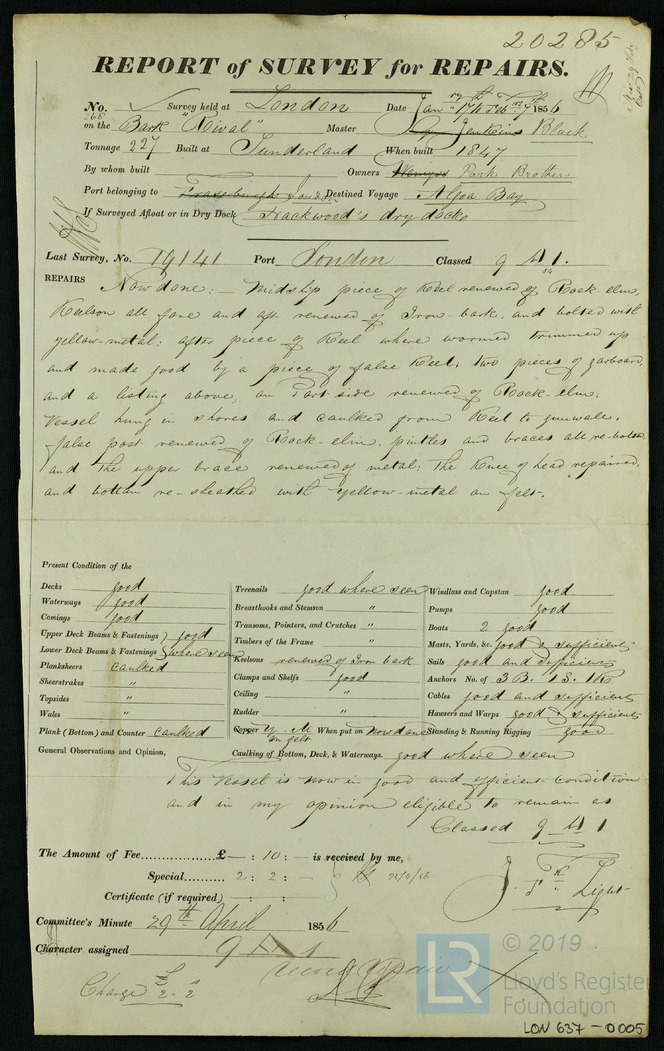 20285
REPORT of SURVEY for REPAIRS.
No. 268 Survey held at London Date Jany 17th 1856
on the Bark "Rival" Master Jenkins Black
Tonnage 227 Built at Sunderland When built 1847
By whom built Owners Park Brothers
Port belonging to London Destined Voyage Algoa Bay
If Surveyed Afloat or in Dry Dock Trackwood's dry dock
Last Survey, No. 19141 Port London Classed 9 A 1.
54
REPAIRS Now done:- Midship piece of Keel renewed of Rock-elm,
Keelson all fore and aft renewed of Iron-bark, and bolted with
yellow-metal; after piece of Keel where wormed trimmed up
and made good by a piece of false Keel; two pieces of garboard,
and a listing above, on Port side renewed of Rock-elm;
Vessel hung in shores and caulked from Keel to gunwale,
false post renewed of Rock-elm, pintles and braces all re-bolted,
and the upper brace renewed of metal; the Knee of head repaired,
and bottom re-sheathed with yellow-metal on felt.
Present Condition of the
Decks good
Waterways good
Comings good
Upper Deck Beams & Fastenings } good
Lower Deck Beams & Fastenings } where seen
Planksheers caulked
Sheerstrakes "
Topsides "
Wales "
Plank (Bottom) and Counter caulked
Treenails good where seen
Breasthooks and Stemson "
Transoms, Pointers, and Crutches "
Timbers of the Frame "
Keelsons renewed of Iron bark
Clamps and Shelfs good
Ceiling "
Rudder "
Copper Y. M. on felt When put on Now done
Caulking of Bottom, Deck, & Waterways. good where seen
Windlass and Capstan good
Pumps good
Boats 2 good
Masts, Yards, &c. good & sufficient
Sails good and sufficient
Anchors No. of 3 B. 1 S. 1 K.
Cables good and sufficient
Hawsers and Warps good & sufficient
Standing & Running Rigging good
General Observations and Opinion,
This Vessel is now in good and efficient condition
and in my opinion eligible to remain as
Classed 9 A 1
The Amount of Fee............... £ - : 10 : - is received by me,
Special.......... 2 : 2 : -
Certificate (if required)
J. Light
Committee's Minute 29th April 1856
Character assigned 9 A 1
record repair
Charge £2. 2s
LR
© 2019
Lloyd's Register
Foundation
LON 637 - 0005